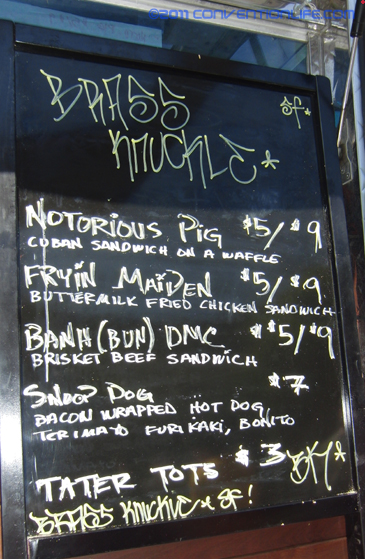 ©2011 CONVENTIONLIFE.COM
BRASS
KNUCKLE*
SF*
NOTORIOUS PIG $5/$9
CUBAN SANDWICH ON A WAFFLE
FRYIN MAIDEN $5/$9
BUTTERMILK FRIED CHICKEN SANDWICH
BANH (BUN) DMC $5/$9
BRISKET BEEF SANDWICH
SNOOP DOG $7
BACON WRAPPED HOT DOG
TERIMAYO FURIKAKI, BONITO
TATER TOTS $3 BK*
BRASS KNUCKLE* SF!